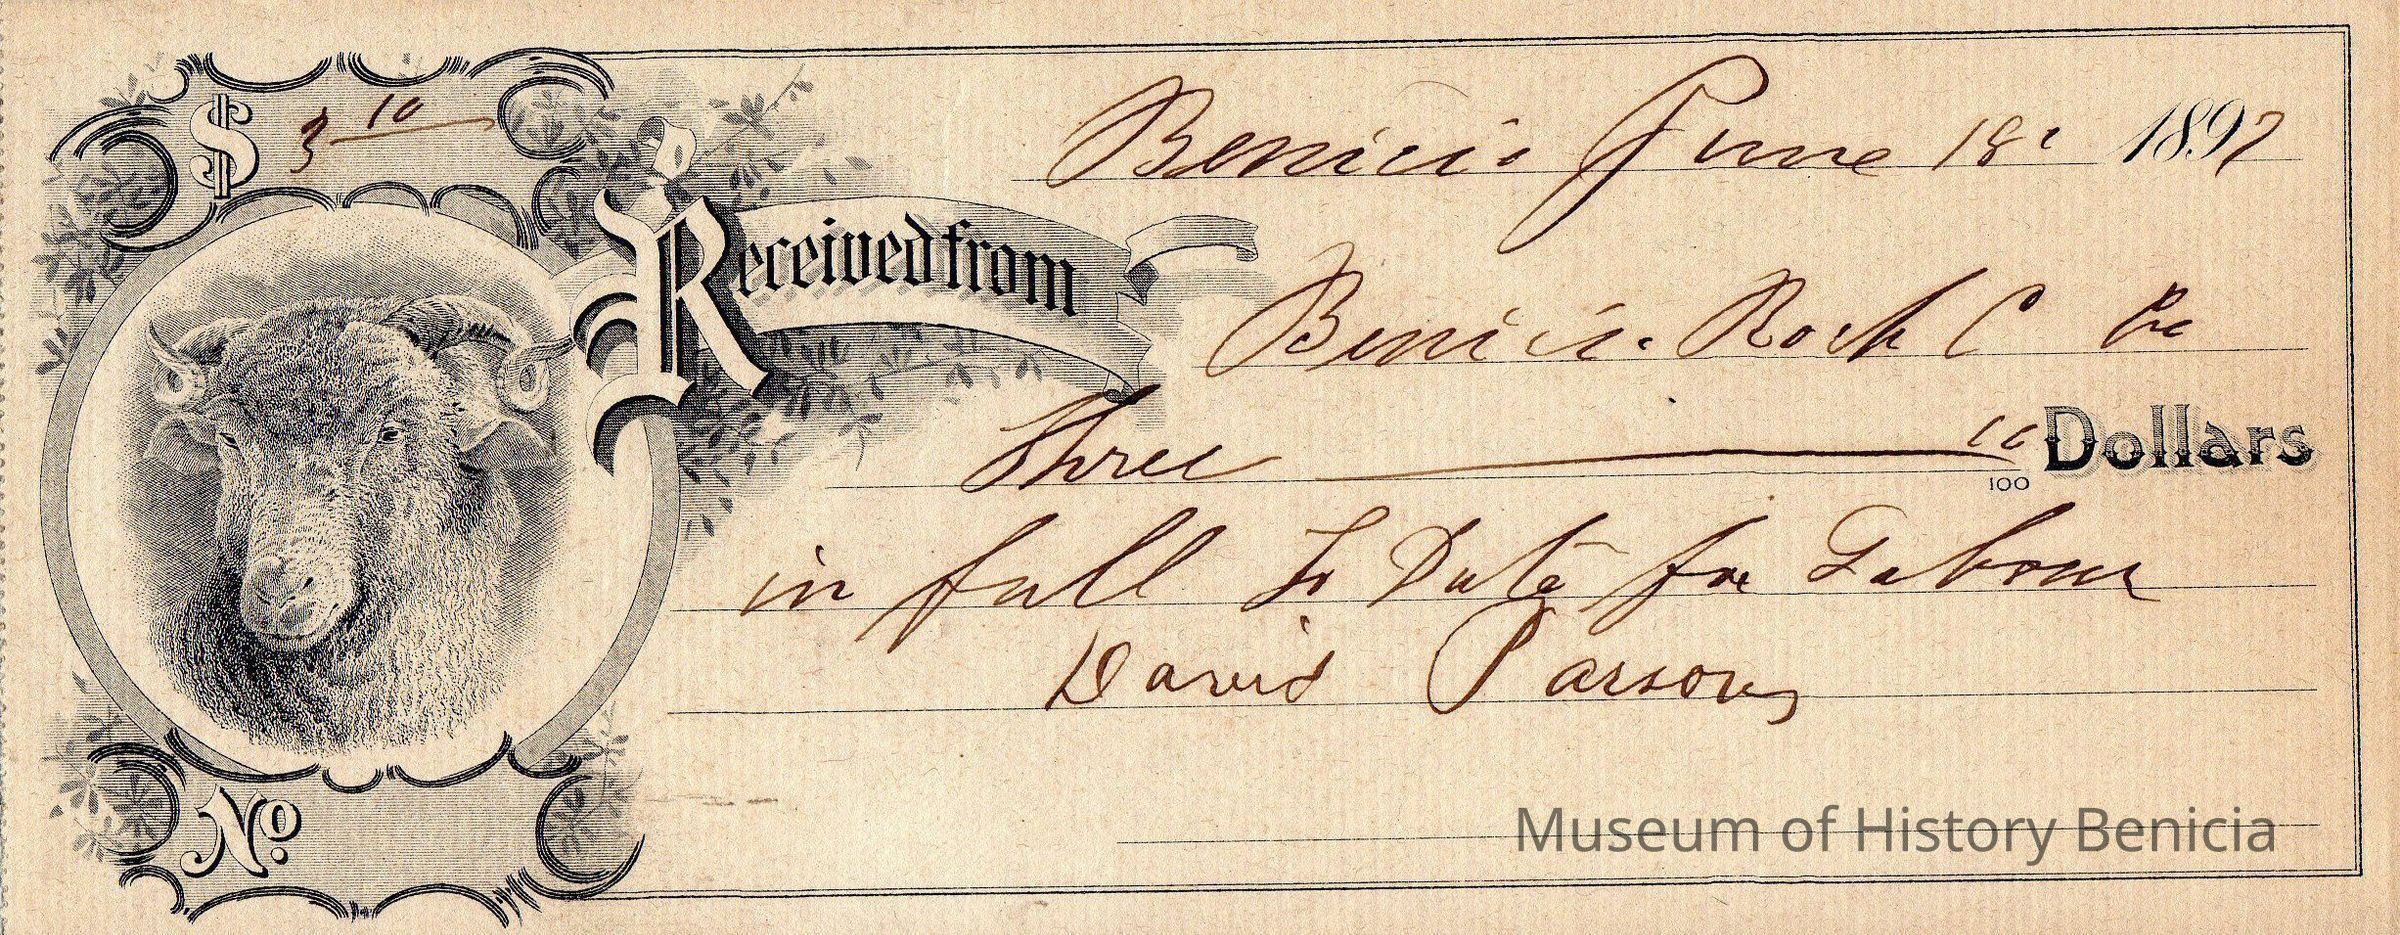 $ 3 10
Benicia June 18 1897
Received from Benicia Rock C
Three 10/100 Dollars
in full To Date for Labour
David Parsons
No
Museum of History Benicia